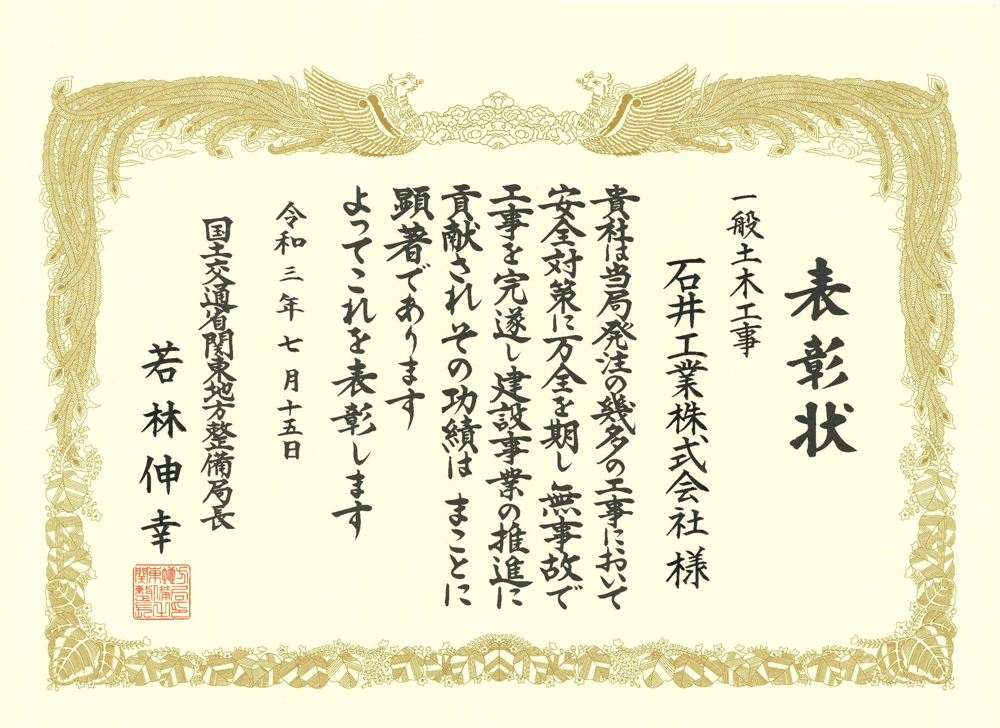 表彰状
一般土木工事
石井工業株式会社様
貴社は当局発注の幾多の工事において
安全対策に万全を期し無事故で
工事を完遂し建設事業の推進に
貢献されその功績はまことに
顕著であります
よってこれを表彰します
令和三年七月十五日
国土交通省関東地方整備局長
若林伸幸